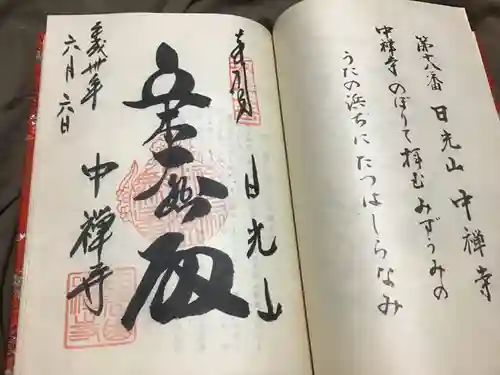 第十八番 日光山 中禅寺
中禅寺 のぼりて拝む みずうみの
うたの浜ぢに たつはしらなみ
奉拝 日光山
中禅寺
平成卅年
六月六日